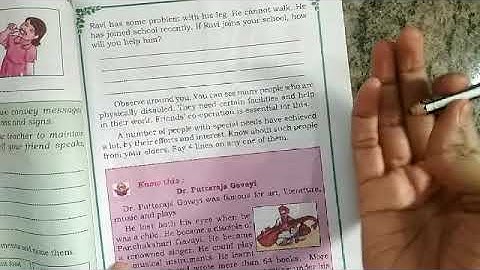 Ravi has some problem with his leg. He cannot walk. He
has joined school recently. If Ravi joins your school, how
will you help him?
Observe around you. You can see many people who are
physically disabled. They need certain facilities and help
in their work. Friends' co-operation is essential for this.
A number of people with special needs have achieved
a lot, by their efforts and interest. Know about such people
from your elders. Say 4 lines on any one of them.
Know this :
Dr. Puttaraja Gavayi
Dr. Puttaraja Gavayi was famous for art, literature,
music and plays.
He lost both his eyes when he
was a child. He became a disciple of
Panchakshari Gavayi. He became
a renowned singer. He could play
musical instruments. He learnt
and wrote more than 54 books. More
convey messages
and signs.
teacher to maintain
if your friend speaks,
and name them.